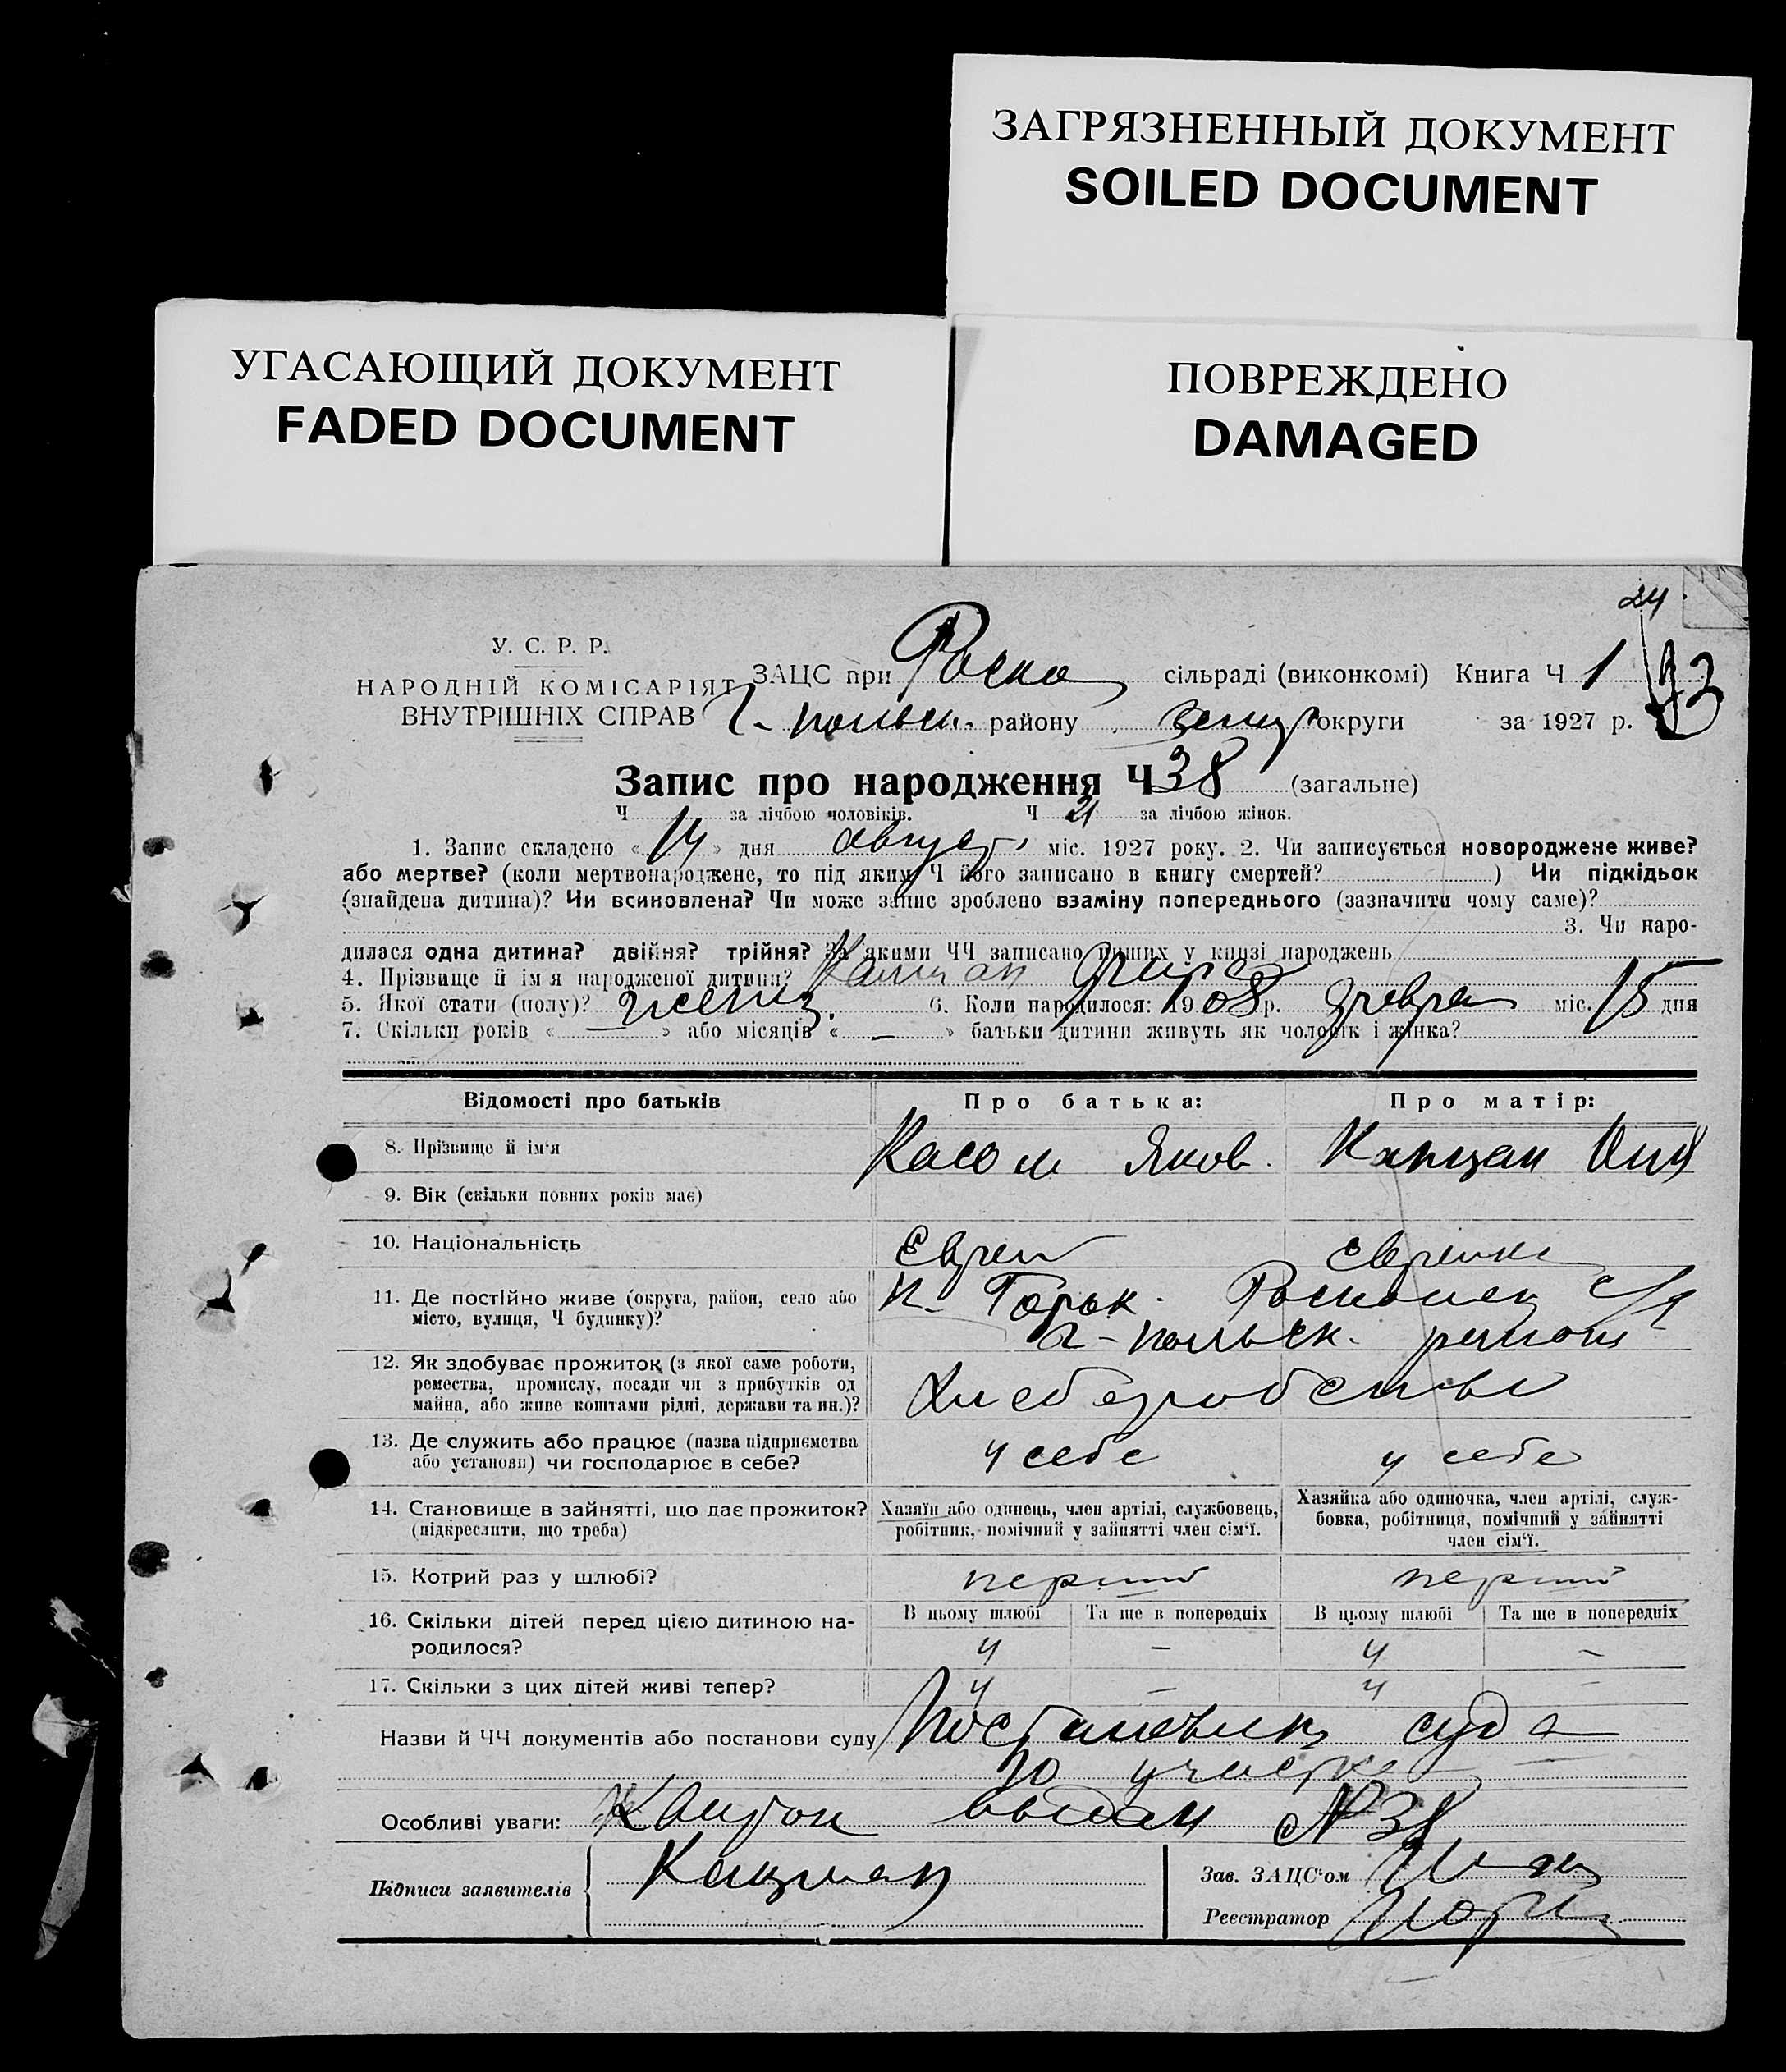 ЗАГРЯЗНЕННЫЙ ДОКУМЕНТ
SOILED DOCUMENT
УГАСАЮЩИЙ ДОКУМЕНТ
FADED DOCUMENT
ПОВРЕЖДЕНО
DAMAGED
24
У. С. Р. Р.
НАРОДНІЙ КОМІСАРІЯТ
ВНУТРІШНІХ СПРАВ
ЗАЦС при сільраді (виконкомі) Книга Ч 1
району округи за 1927 р.
Запис про народження Ч 38 (загальне)
Ч за лічбою чоловіків. Ч 21 за лічбою жінок.
1. Запис складено « 14 » дня август міс. 1927 року. 2. Чи записується новороджене живе?
або мертве? (коли мертвонароджене, то під яким Ч його записано в книгу смертей? ) Чи підкідьок
(знайдена дитина)? Чи всиновлена? Чи може запис зроблено взаміну попереднього (зазначити чому саме)?
3. Чи наро-
дилася одна дитина? двійня? трійня? За якими ЧЧ записано инших у книзі народжень
4. Прізвище й ім'я народженої дитини?
5. Якої стати (полу)? женщ. 6. Коли народилося: 1908 р. феврал міс. 15 дня
7. Скільки років « — » або місяців « — » батьки дитини живуть як чоловік і жінка?
Відомості про батьків Про батька: Про матір:
8. Прізвище й ім'я Яков Капцан
9. Вік (скільки повних років має)
10. Національність Еврей еврейка
11. Де постійно живе (округа, район, село або
місто, вулиця, Ч будинку)?
12. Як здобуває прожиток (з якої саме роботи,
ремества, промислу, посади чи з прибутків од
майна, або живе коштами рідні, держави та ин.)?
13. Де служить або працює (назва підприємства
або установи) чи господарює в себе? у себе у себе
14. Становище в зайнятті, що дає прожиток?
(підкреслити, що треба)
Хазяїн або одинець, член артілі, службовець,
робітник, помічний у зайнятті член сім'ї.
Хазяйка або одиночка, член артілі, служ-
бовка, робітниця, помічний у зайнятті
член сім'ї.
15. Котрий раз у шлюбі? перший перший
16. Скільки дітей перед цією дитиною на-
родилося?
В цьому шлюбі Та ще в попередніх В цьому шлюбі Та ще в попередніх
4 — 4 —
17. Скільки з цих дітей живі тепер? 4 — 4 —
Назви й ЧЧ документів або постанови суду суда
участке
Особливі уваги: выдан №38
Підписи заявителів
Зав. ЗАЦС'ом
Реєстратор